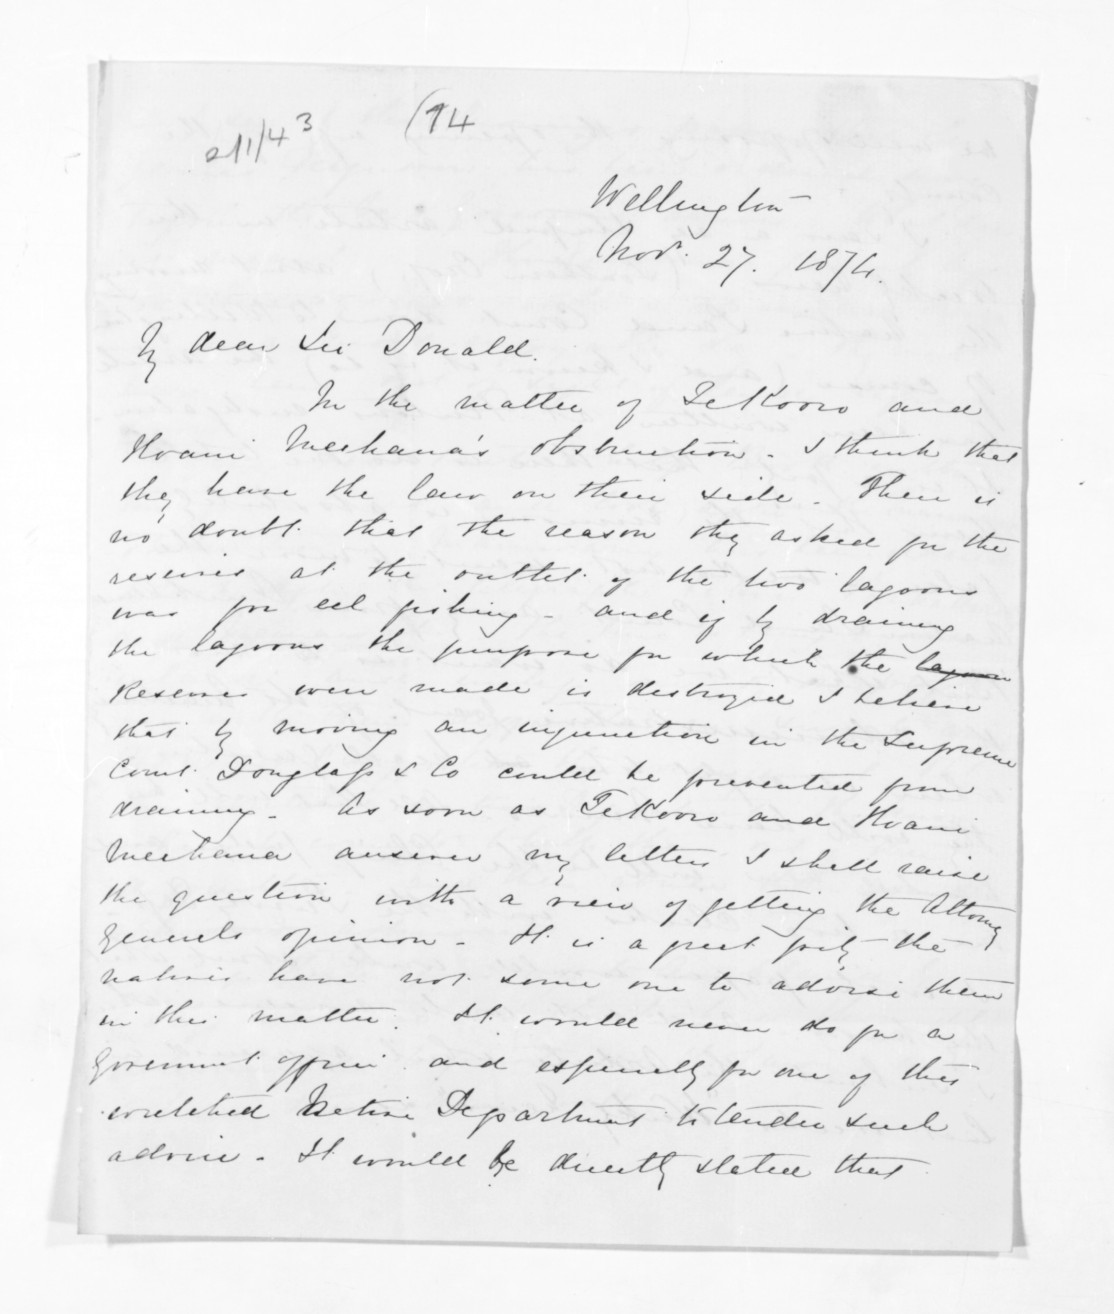 211/43 (94
Wellington
Nov. 27. 1874.
My dear Sir Donald.
In the matter of Te Kooro and
Hoani Meihana's obstruction - I think that
they have the law on their side. There is
no doubt that the reason they asked for the
reserves at the outlet of the two lagoons
was for eel fishing - and if by draining
the lagoons the purpose for which the lagoon
Reserves were made is destroyed I believe
that by moving an injunction in the Supreme
Court Douglass & Co could be prevented from
draining - As soon as Te Kooro and Hoani
Meihana answer my letters I shall raise
the question with a view of getting the Attorney
Generals opinion - It is a great pity the
natives have not some one to advise them
in this matter. It would never do for a
Government officer and especially for one of this
wretched Native Department to tender such
advice - It would be directly stated that